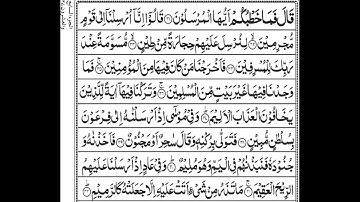 قَالَ فَمَا خَطْبُكُمْ اَيُّهَا الْمُرْسَلُوْنَ ۝ قَالُوْٓا اِنَّآ اُرْسِلْنَآ اِلٰى قَوْمٍ
مُّجْرِمِيْنَ ۝ لِنُرْسِلَ عَلَيْهِمْ حِجَارَةً مِّنْ طِيْنٍ ۝ مُّسَوَّمَةً عِنْدَ
رَبِّكَ لِلْمُسْرِفِيْنَ ۝ فَاَخْرَجْنَا مَنْ كَانَ فِيْهَا مِنَ الْمُؤْمِنِيْنَ ۝ فَمَا
وَجَدْنَا فِيْهَا غَيْرَ بَيْتٍ مِّنَ الْمُسْلِمِيْنَ ۝ وَتَرَكْنَا فِيْهَآ اٰيَةً لِّلَّذِيْنَ
يَخَافُوْنَ الْعَذَابَ الْاَلِيْمَ ۝ وَفِيْ مُوْسٰٓى اِذْ اَرْسَلْنٰهُ اِلٰى فِرْعَوْنَ
بِسُلْطٰنٍ مُّبِيْنٍ ۝ فَتَوَلّٰى بِرُكْنِهٖ وَقَالَ سٰحِرٌ اَوْ مَجْنُوْنٌ ۝ فَاَخَذْنٰهُ وَ
جُنُوْدَهٗ فَنَبَذْنٰهُمْ فِي الْيَمِّ وَهُوَ مُلِيْمٌ ۝ وَفِيْ عَادٍ اِذْ اَرْسَلْنَا عَلَيْهِمُ
الرِّيْحَ الْعَقِيْمَ ۝ مَا تَذَرُ مِنْ شَيْءٍ اَتَتْ عَلَيْهِ اِلَّا جَعَلَتْهُ كَالرَّمِيْمِ ۝